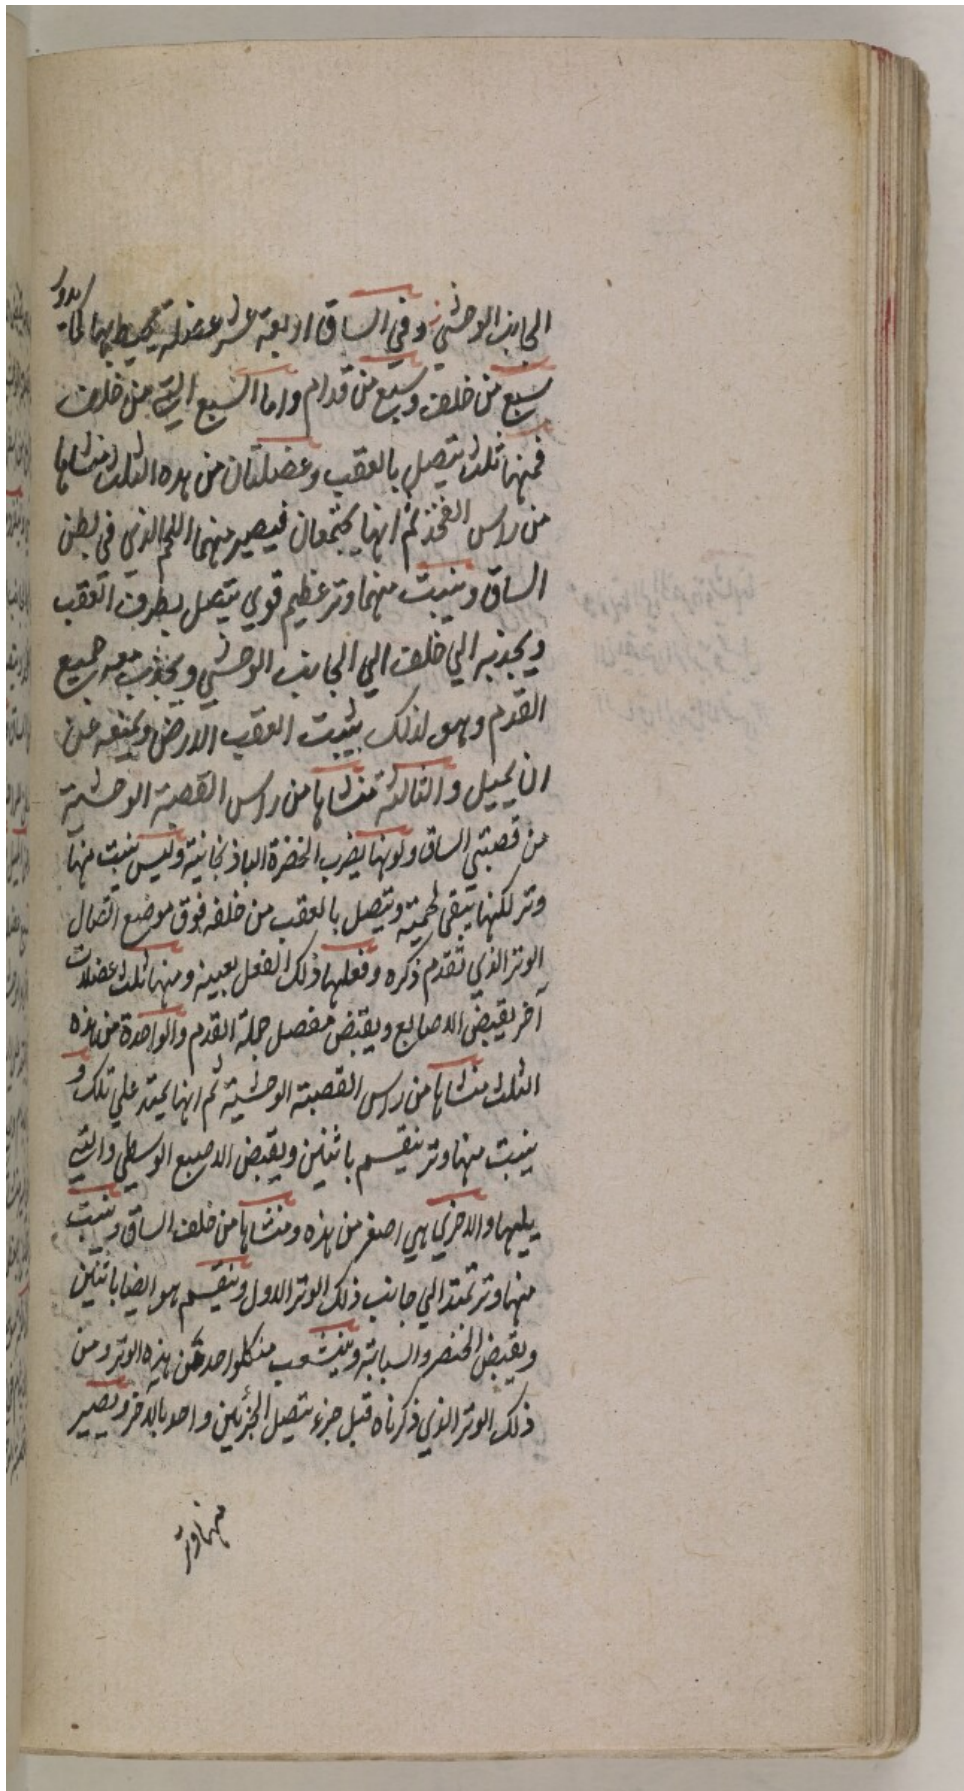 الجانب الوحشي وفي الساق اربعة عشر عضلة تحيط بها كما يدور
سبع من خلف وسبع من قدام واما السبع التي من خلف
فمنها ثلث تتصل بالعقب وعضلتان من هذه الثلث منشاها
من راس الفخذ ثم انها يجتمعان فيصير منهما اللحم الذي في بطن
الساق وينبت منهما وتر عظيم قوي يتصل بطرف العقب
ويجذبه الي خلف الي الجانب الوحشي ويجذب معه جميع
القدم وهو لذلك يثبت العقب الارض ويمنعه عن
ان يميل والثالثة منشاها من راس القصبة الوحشية
من قصبتي الساق ولونها يضرب الخضرة الباذنجانية وليس ينبت منها
وتر لكنها يتبقى لحمية وتتصل بالعقب من خلفه فوق موضع اتصال
الوتر الذي تقدم ذكره وفعلها ذلك الفعل بعينه ومنها ثلث عضلات
آخر يقبض الاصابع ويقبض مفصل جملة القدم والواحدة من هذه
الثلث منشاها من راس القصبة الوحشية ثم انها يمتد علي تلك و
ينبت منها وتر ينقسم باثنين ويقبض الاصبع الوسطي والتي
يليها والاخري هي اصغر من هذه ومنشاها من خلف الساق وينبت
منها وتر تمتد الي جانب ذلك الوتر الاول وينقسم هو ايضا باثنين
ويقبض الخنصر والسبابة وينشعب من كلواحد من هذه الوتر ومن
ذلك الوتر الذي ذكرناه قبل جزء يتصل الجزئين واحد بالاخر ويصير
منهما وتر